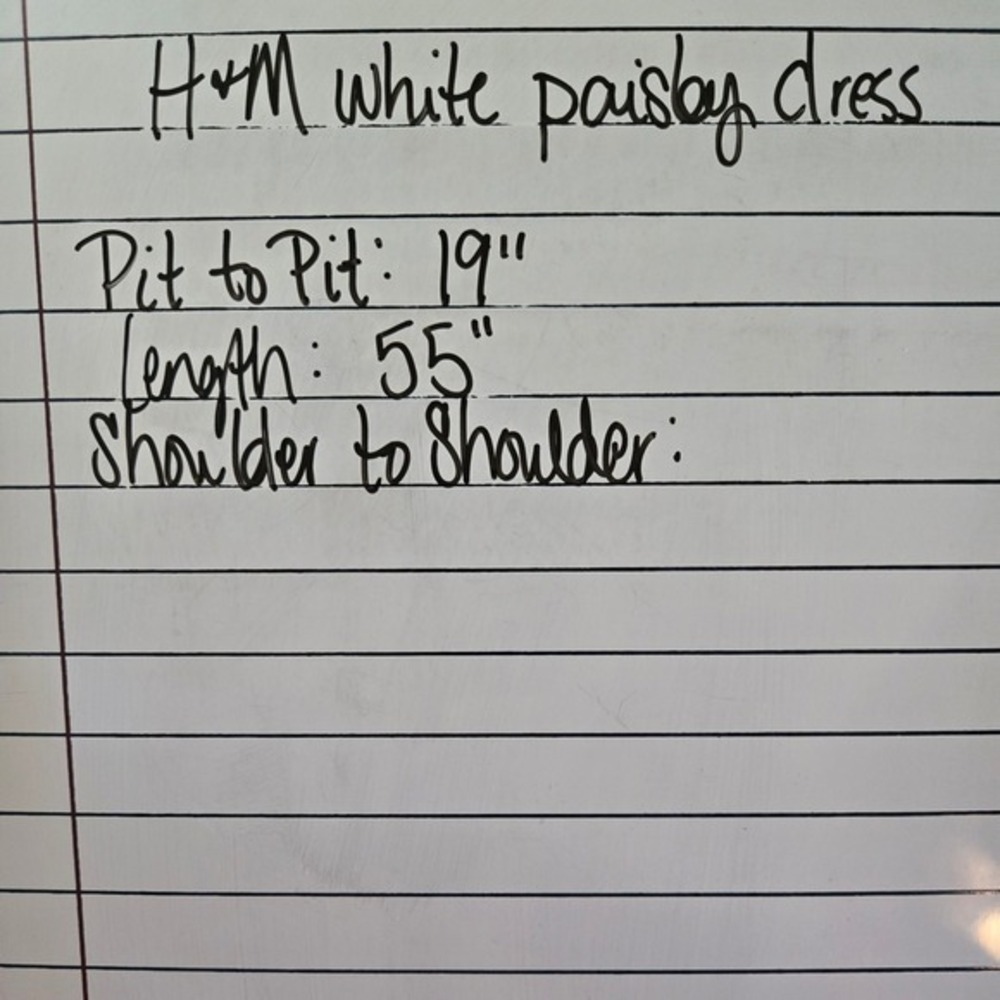 H+M white paisley dress
Pit to Pit: 19"
Length: 55"
Shoulder to Shoulder: